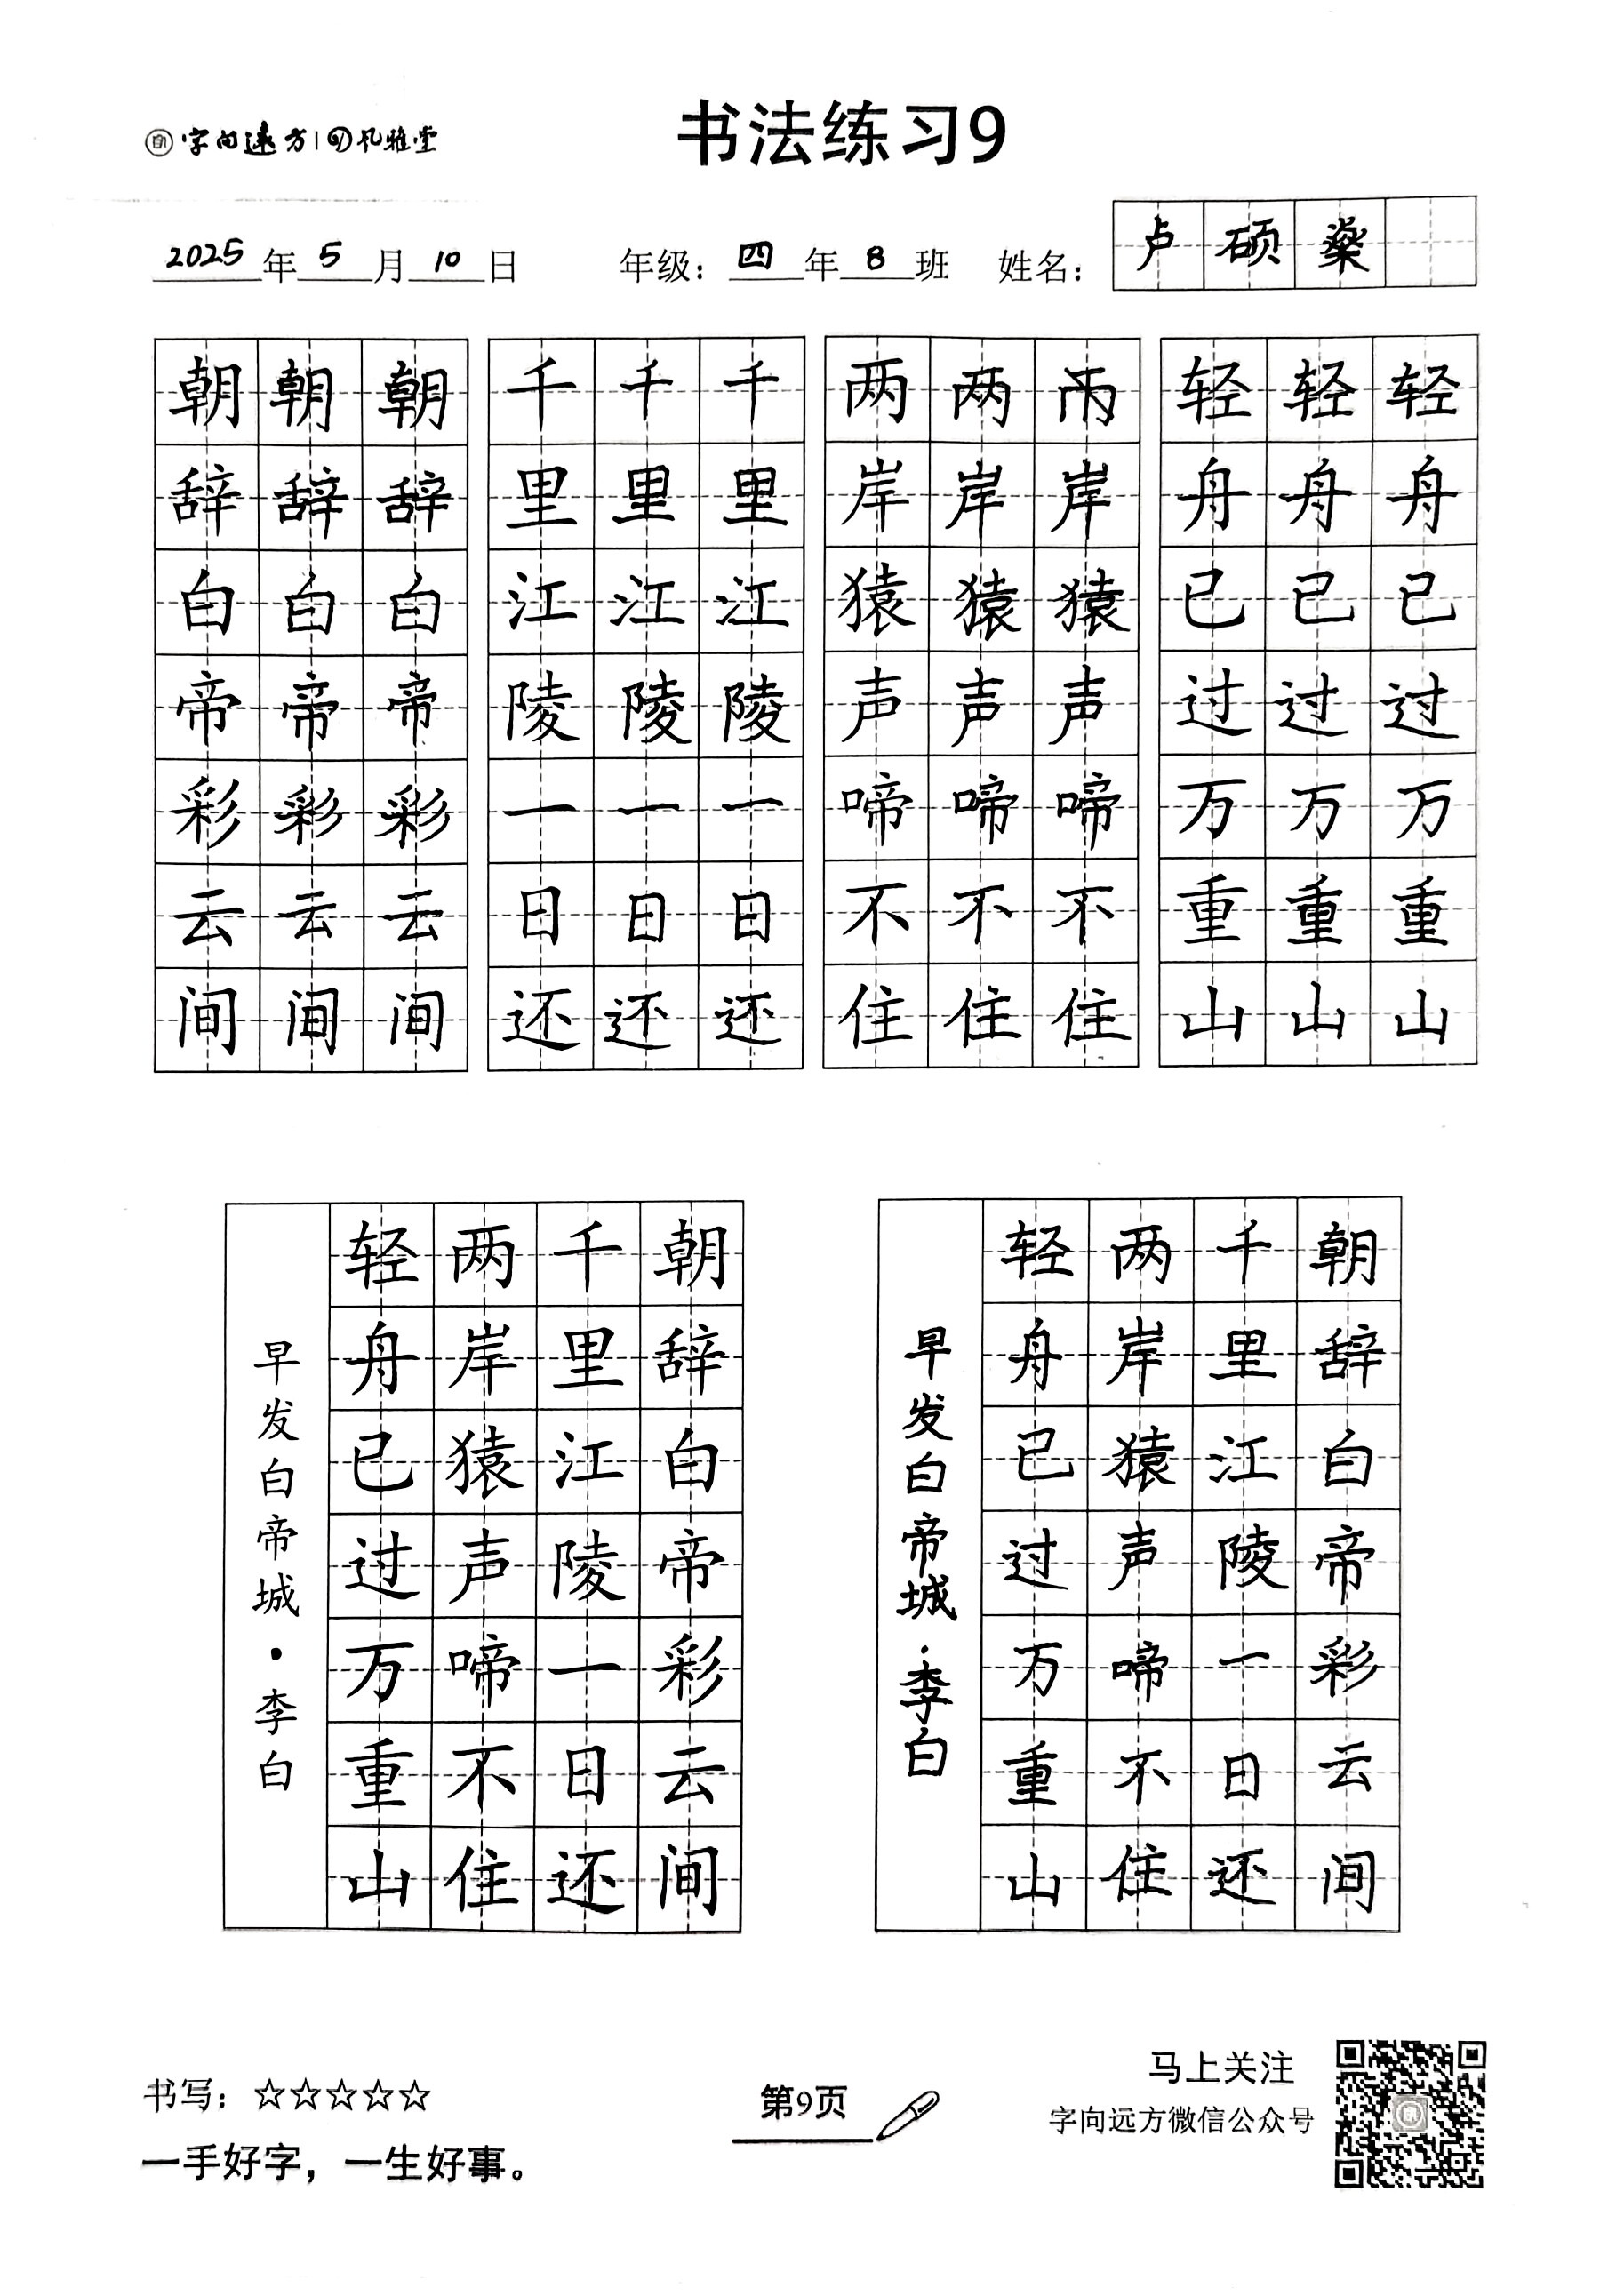 字向远方|孔雅堂
书法练习9
2025年5月10日 年级：四年8班 姓名：卢硕燊
朝朝朝 千千千 两两两 轻轻轻
辞辞辞 里里里 岸岸岸 舟舟舟
白白白 江江江 猿猿猿 已已已
帝帝帝 陵陵陵 声声声 过过过
彩彩彩 一一一 啼啼啼 万万万
云云云 日日日 不不不 重重重
间间间 还还还 住住住 山山山
朝辞白帝彩云间
千里江陵一日还
两岸猿声啼不住
轻舟已过万重山
早发白帝城·李白
朝辞白帝彩云间
千里江陵一日还
两岸猿声啼不住
轻舟已过万重山
早发白帝城·李白
书写：☆☆☆☆☆
一手好字，一生好事。
第9页
马上关注
字向远方微信公众号